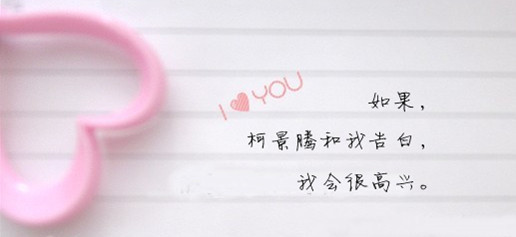 I ♥ YOU
如果，
柯景腾和我告白，
我会很高兴。